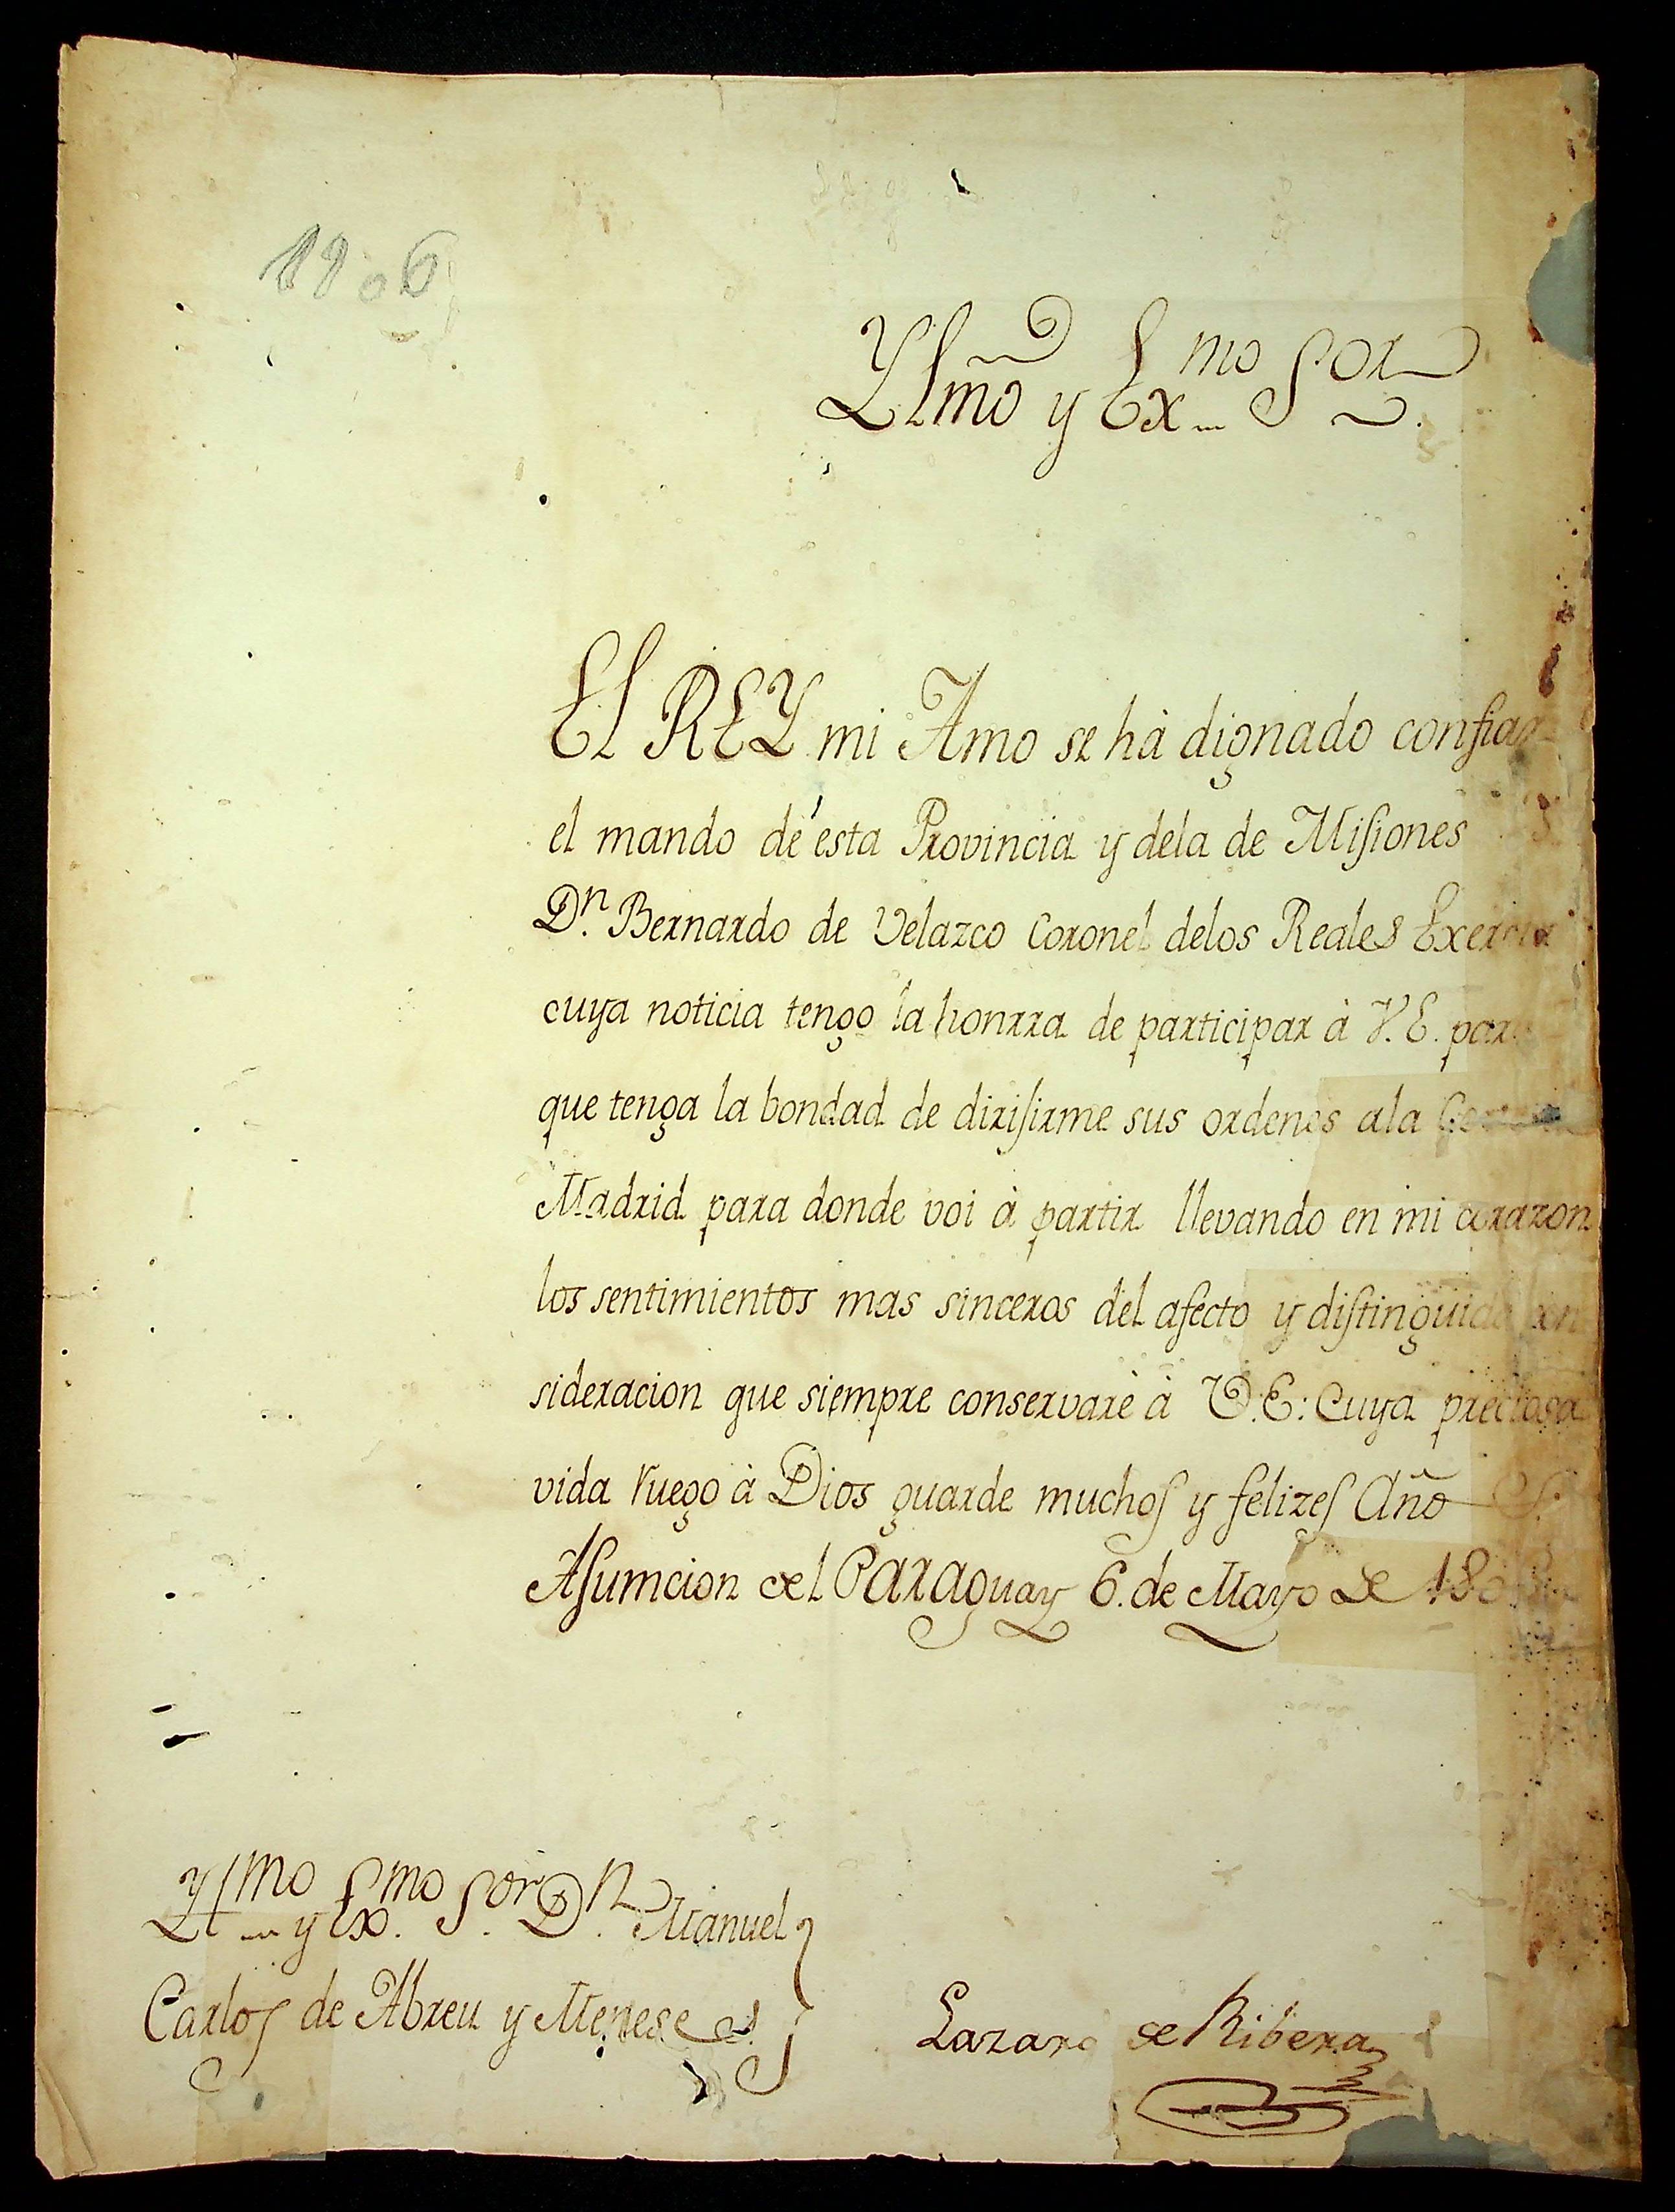 1806
Yllmo y Exmo Sor.
El REY mi Amo se hà dignado confiar
el mando de esta Provincia y dela de Misiones
Dn. Bernardo de Velazco Coronel delos Reales
cuya noticia tengo la honrra de participar à V.E. para
que tenga la bondad de dirisirme sus ordenes ala
Madrid para donde voi à partir llevando en mi corazon
los sentimientos mas sinceros del afecto y distinguida con
sideracion que siempre conservarè à V.E: Cuya preciosa
vida ruego à Dios guarde muchos y felizes Años.
Asumcion del Paraguay 6. de Mayo de
Yllmo y Exmo. Sor. Dn. Manuel
Carlos de Abreu y Meneses.
Lazaro de Ribera